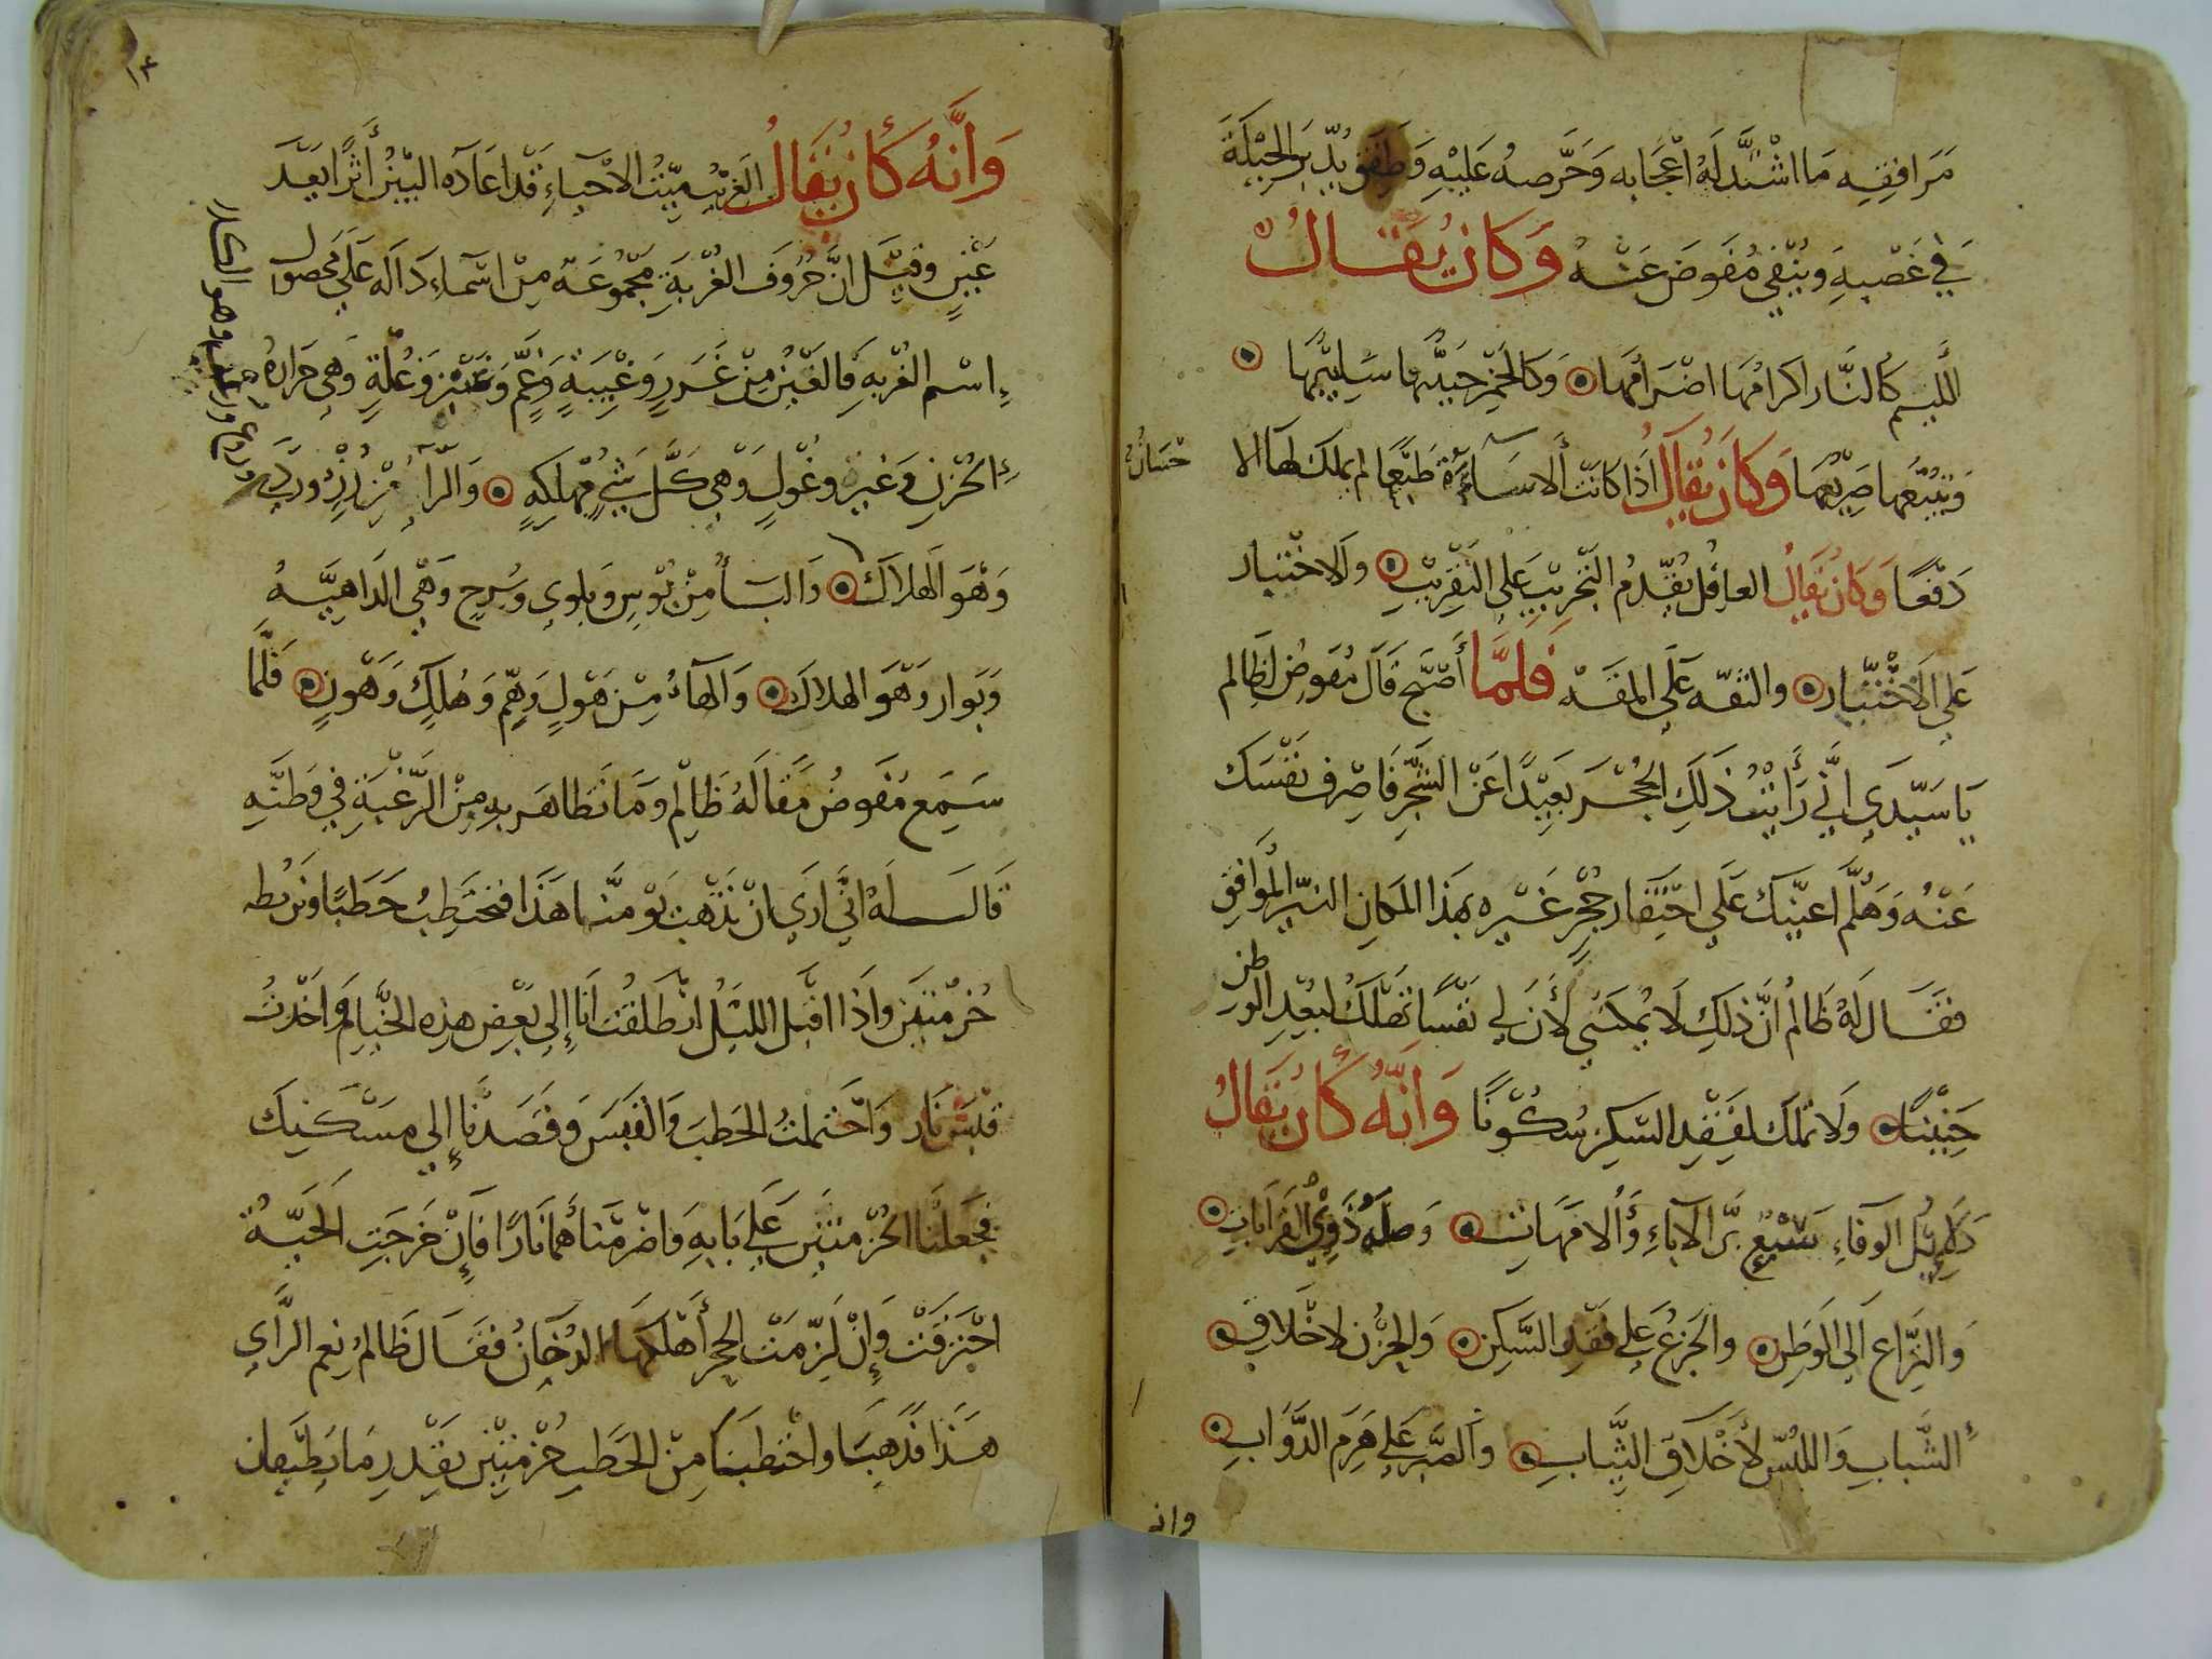 مَرَافِقِه مَا اشْتَدَّ لَهُ اعْجَابه وَحَرَّصهُ عَلَيْهِ وَطَفَقَ يُدَبِّر الحِيْلَة
فِي غَصْبِهِ وَيُنْفِي مُفَوضَ عَنْهُ وَكَانَ يُقَالُ
اللَّئِيم كَالنَّار اكرَامُهَا اضْرَامُهَا وَكَالخَمْرِ حَبِيْبُهَا سَلِيْبُهَا
وَتَبِيْعُهَا صَرِيْعُهَا وَكَانَ يُقَالُ اذَا كَانَت الاسَاءَةُ طَبْعًا لم يملك لهَا الا
حْسَانُ
دَفْعًا وَكَانَ يُقَالُ العاقل يُقَدِّمُ التَّجْرِيْبَ عَلَى التَّقْرِيْبِ وَالاخْتبار
عَلَى الاخْتِيَار والثقه عَلَى المقَه فَلَمَّا أَصْبَحَ قَالَ مُفَوضُ لِظَالم
يَا سَيِّدَي انِّي رَأَيْتُ ذَلِكَ الجُحْر بَعِيْدًا عَنْ الشَّجَرِ فَاصْرِف نَفْسَكَ
عَنْهُ وَهَلُمَّ اعيْنك عَلَى احْتِفَار جُحْرٍ غَيْرِه بِهَذَا المَكَانِ النيّر المُوَافِقِ
فَقَالَ لَهُ ظَالمُ انَّ ذَلِكَ لَا يُمْكنُنِي لأنَّ لِي نَفْسًا تَهْلكُ لِبُعْدِ الوَطن
حَنِيْنًا وَلَا تملكَ لِفَقْدِ السَّكن سُكُوْنًا وَانَّهُ كَانَ يُقَالُ
دَلَايِلُ الوَفَاءِ سَبْعٌ بَرُّ الآبَاءِ وَالامَّهَات وَصِلَهُ ذَوِي القَرَابَاتِ
وَالنِّزَاع الى الوَطَنِ وَالجَزعُ عَلى فَقْدِ السَّكن وَالحُزْن لاخْلَاقِ
الشَّبابِ وَاللبْسُ لأخْلَاقِ الثِّيَابِ وَالصَّبر عَلى هَرَم الدَّوَابِ
وانه
١٤
وَأنَّهُ كَانَ يُقَالُ الغَرِيْب مَيِّتُ الاحْيَاءِ قَدْ اعَادَه البَيْنُ أثَرًا بَعْدَ
عَيْنٍ وقِيْل انَّ حُرُوفَ الغُرْبَةِ مَجْمُوعَة مِنْ اسْمَاءِ دَالَه عَلَى مَحصول
اسْم الغُرْبهِ فَالغَيْنُ مِنْ غَرَرٍ وَغَيْبَةٍ وَغَمٍّ وَغَبْنٍ وَغُلَّةٍ وَهي حَرَارهُ
الحُزْنِ وَغيرةِ وغُولٍ وَهي كَل شَيءٍ مُهْلِكهٍ وَالرآء مِنْ رُزْءٍ وَرَدَى
وروع وردا وهو الهلاك
وَهْوَ الهَلَاك وَالبَاءُ مِنْ بُؤسِ وَبلوى وبُرحِ وَهْي الدَاهِيَهُ
وَبَوار وَهَوَ الهلاكَ وَالهآءُ مِنْ هَوْلٍ وَهمٍّ وَهُلكٍ وَهَوْنٍ فَلَمَّا
سَمِع مُفَوضُ مَقَالَهُ ظَالِم وَمَا تَظَاهَر بِهِ مِنَ الرَّغْبَةِ فِي وَطَنِهِ
قَالَ لَهُ انِّي ارَي انْ نَذْهَبَ يَوْمنَا هَذَا فَنَحْتَطِبُ حَطَبًا ونربُطه
حُزْمتَيْن وَاذَا اقبَل الليْلُ انْطَلَقْتُ انَا إلى بَعْضِ هذِه الخِيَامِ وَاخَذْتُ
قَبَسَ نَار وَاحْتَمَلْتُ الحَطبَ وَالقَبَسَ وَقَصَدْنَا إلى مَسْكَنِكَ
فجَعَلْنَا الحُزْمتَيْن عَلى بَابِهِ وَاضْرَمْنَا هُمَا نَارًا فَإنْ خَرَجَتِ الحَيَّةُ
احْتَرَقَتْ وَإنْ لَزمَتْ الجحْر أهْلَكهَا الدُخَانُ فَقَالَ ظَالمُ نِعم الرَّأي
هَذَا فَذَهَبَا وَاحْتَطَبَا مِنْ الحَطَبِ حُزْمَتَيْن بقَدْر مَا يُطيقان